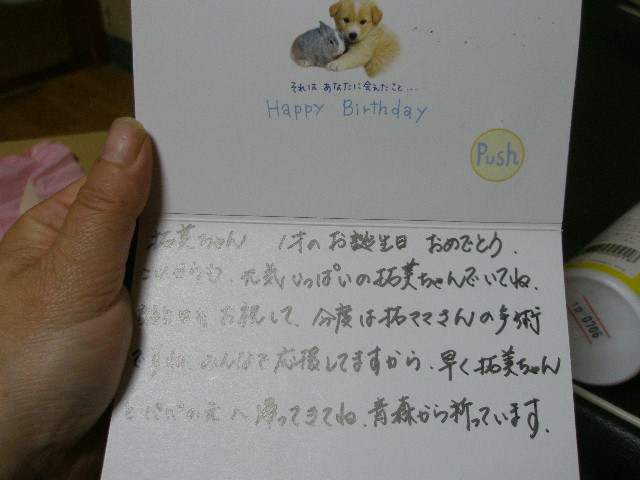 それは あなたに会えたこと...
Happy Birthday
Push
拓美ちゃん 1才のお誕生日 おめでとう.
これからも、元気いっぱいの拓美ちゃんでいてね.
お祝して、今度は拓ママさんの手術
ですね みんなで応援してますから、早く拓美ちゃん
とパパの元へ帰ってきてね、青森から祈っています.
10 0706